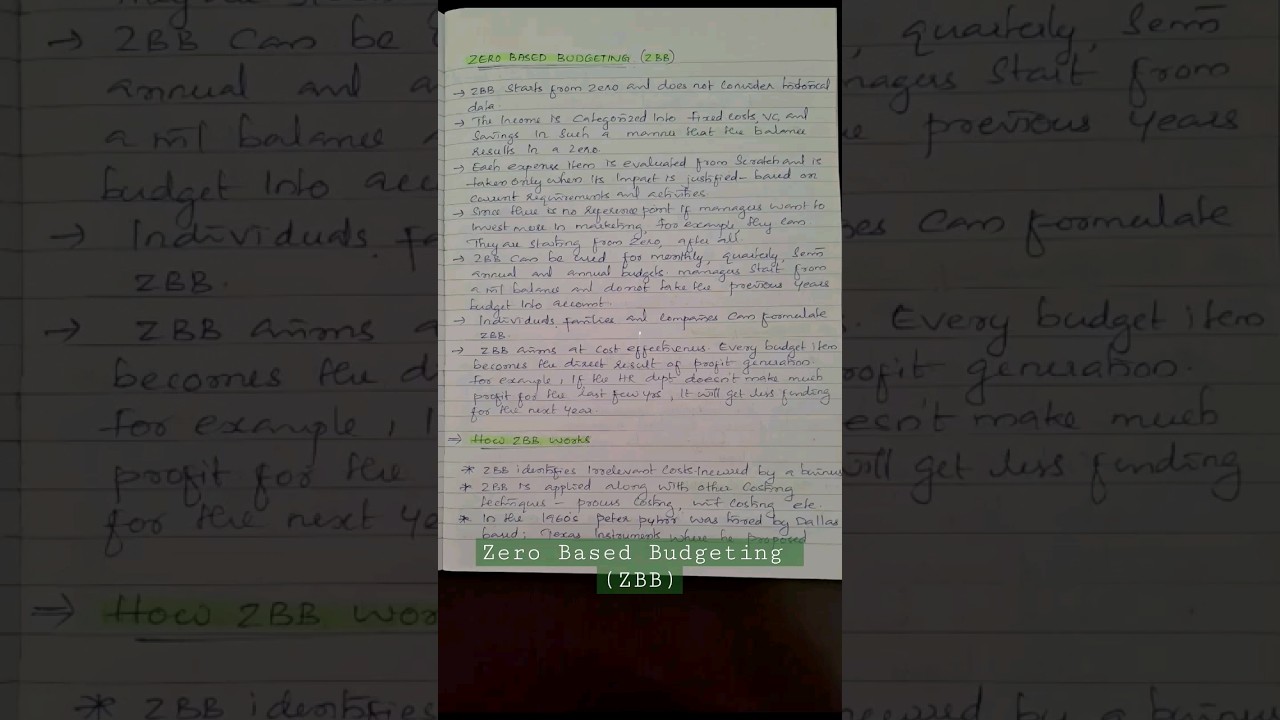 ZERO BASED BUDGETING (ZBB)
→ ZBB starts from zero and does not consider historical
data.
→ The Income is Categorized Into fixed costs, VC, and
Savings In such a manner that the balance
results in a Zero.
→ Each expense Item is evaluated from Scratch and is
taken only when its Impact is justified - based on
current requirements and activities
→ Since there is no reference point If managers want to
Invest more in marketing, for example, they can
They are starting from Zero, after all.
→ ZBB can be used for monthly, quarterly, Semi
annual and annual budgets. managers start from
a nil balance and do not take the previous years
budget Into account
→ Individuals, families and companies can formulate
ZBB.
→ ZBB aims at cost effectiveness. Every budget item
becomes the direct result of profit generation.
for example, If the HR dept doesn't make much
profit for the last few yrs, It will get less funding
for the next year.
⇒ How ZBB works
* ZBB identifies Irrelevant costs Incurred by a
* ZBB Is applied along with other Costing
techniques - process Costing, unit costing etc.
* In the 1960's peter pyhrr was hired by Dallas
based; Texas Instruments where he proposed
Zero Based Budgeting
(ZBB)